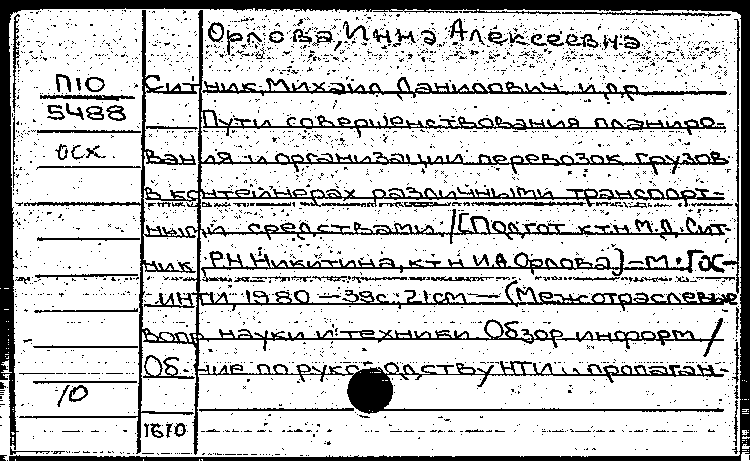 Орлова, Инна Алексеевна
П10
5488
осх
Ситник, Михаил Данилович и др.
Пути совершенствования планиро-
вания и организации перевозок грузов
в контейнерах различными транспорт-
ными средствами. / [Подгот. к.т.н М.Д. Сит-
ник, Р.Н. Никитина, к.т.н И.А. Орлова] – М.: ГОС-
ИНТИ, 1980 – 38с.; 21см – (Межотраслевые
вопр. науки и техники. Обзор. информ /
Об-ние по руководству НТИ и пропаган-
10
1610